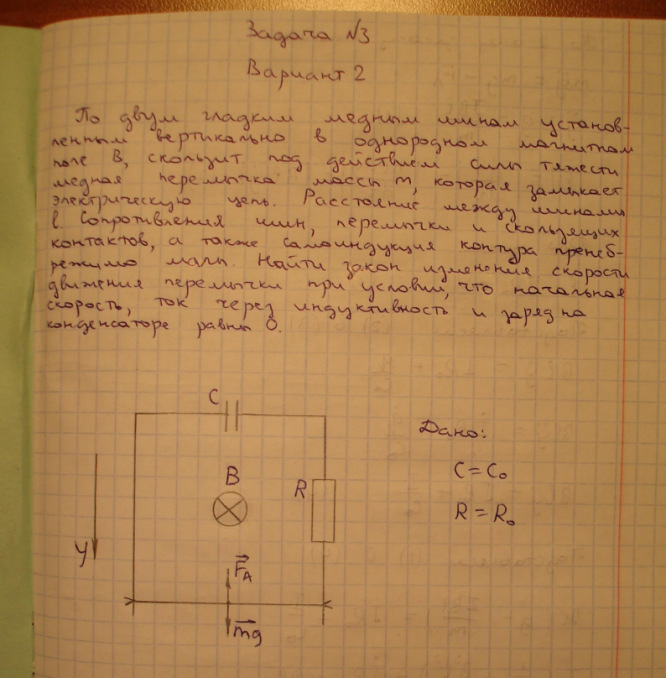 Задача №3
Вариант 2
По двум гладким медным шинам установ-
ленным вертикально в однородном магнитном
поле B, скользит под действием силы тяжести
медная перемычка массы m, которая замыкает
электрическую цепь. Расстояние между шинами
l. Сопротивления шин, перемычки и скользящих
контактов, а также самоиндукция контура пренеб-
режимо малы. Найти закон изменения скорости
движения перемычки при условии, что начальная
скорость, ток через индуктивность и заряд на
конденсаторе равны 0.
C
Дано:
B
R
C = C₀
R = R₀
y
F_A
mg